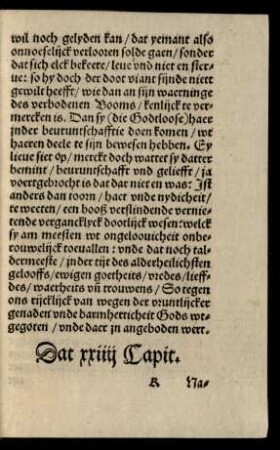 wil noch gelyden kan / dat yemant also
onnoeselijck verlooren solde gaen / sonder
dat sich elck bekeere / leue vnd niet en ster-
ue: so hy doch der doot viant sijnde niett
gewilt heefft / wie dan an sijn waerninge
des verbodenen Booms / kenlijck te ver-
mercken is. Dan sy (die Godtloose) haer
jnder beuruntschafftie doen komen / wt
haeren deele te sijn bewesen hebben. Ey
lieue siet op / merckt doch wattet sy datter
bemint / beuruntschafft vnd geliefft / ja
voertgebrocht is dat dar niet en was: Ist
anders dan toorn / haet vnde nydicheit /
te weeten / een booß verslindende vernie-
tende vergancklyck dootlijck wesen: welck
sy am meesten wt ongeloouicheit onbe-
trouwelijck toeuallen: vnde dat noch tal-
dermeeste / jnder tijt des alderheilichsten
gelooffs / ewigen goetheits / vredes / lieff-
des / waerheits vñ trouwens / So tegen
ons rijcklijck van wegen der vruntlijcker
genaden vnde barmhertticheit Gods wt-
gegoten / vnde daer jn angeboden wert.
Dat xxiiij Capit.
K Na-